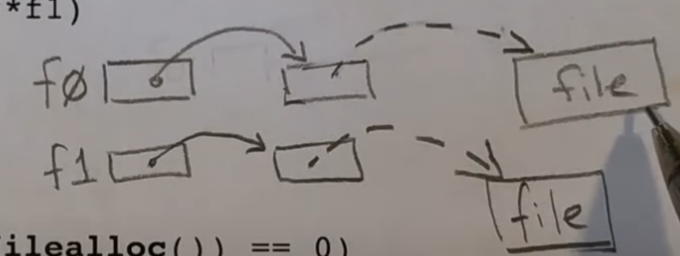 *f1)
f0 file
f1 file
ilealloc()) == 0)